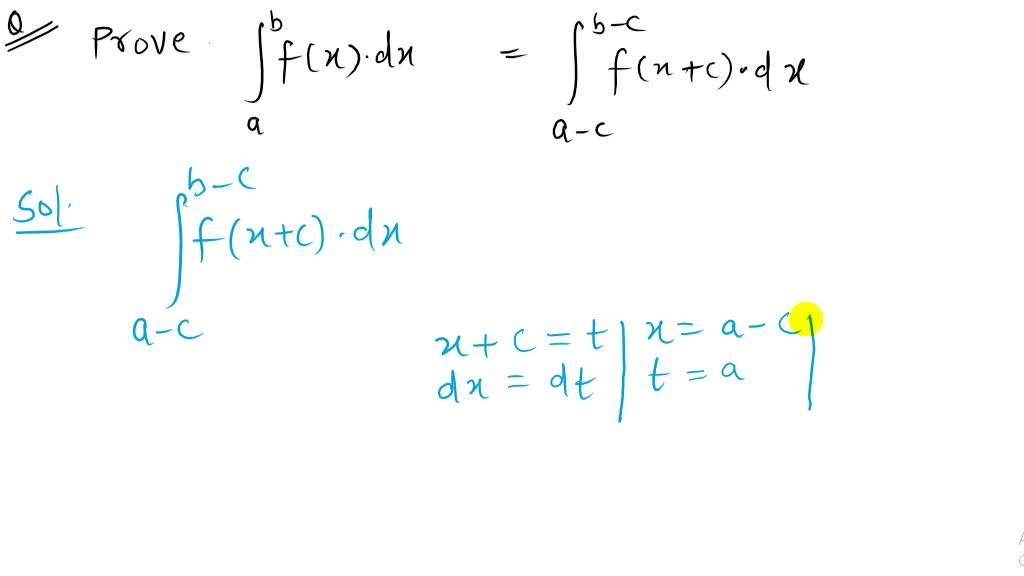 Q Prove ∫_a^b f(x)·dx = ∫_{a-c}^{b-c} f(x+c)·dx
Sol. ∫_{a-c}^{b-c} f(x+c)·dx
x+c=t | x=a-c |
dx=dt | t=a |